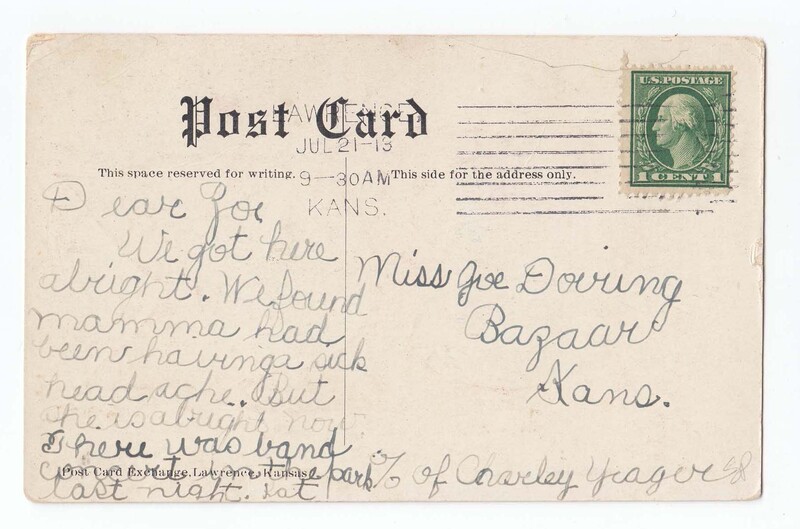 Post Card
LAWRENCE,
JUL 21-13
9-30AM
KANS.
U.S. POSTAGE
1 CENT 1
This space reserved for writing.
This side for the address only.
Dear Zoe
We got here
alright. We found
mamma had
been having a sick
head ache. But
she is alright now
There was band
concert in the park
last night.
Post Card Exchange, Lawrence, Kansas
Miss Zoe Doving
Bazaar
Kans.
% of Charley Yeager